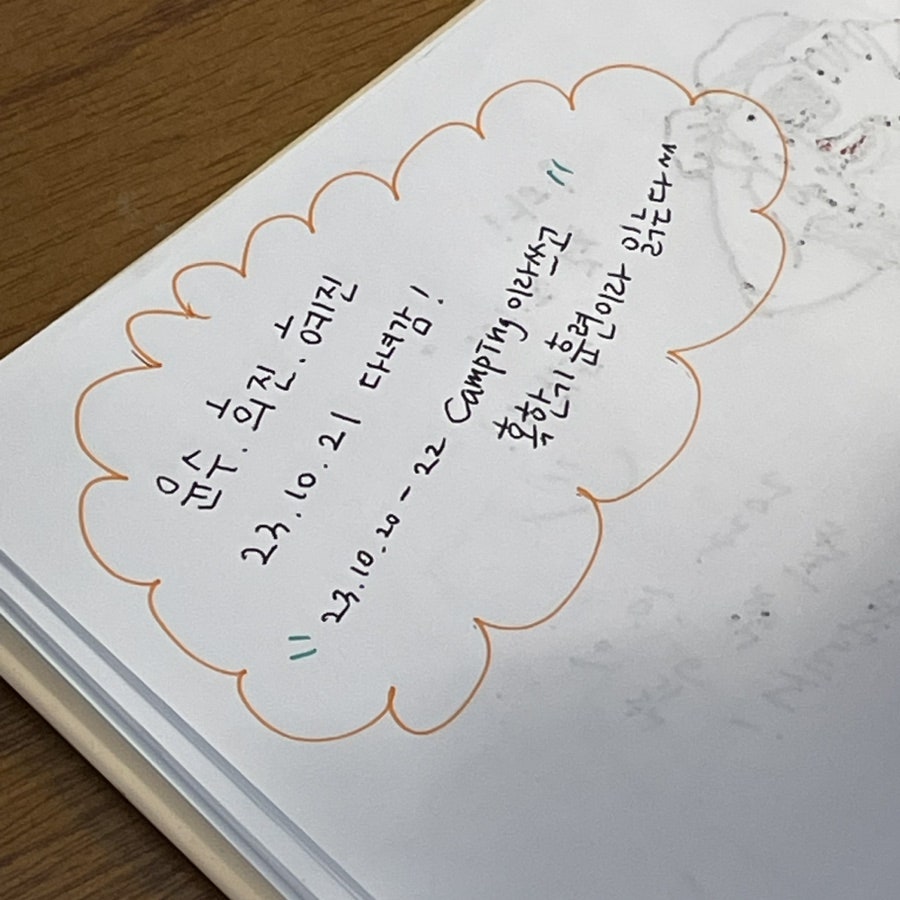 윤수. 희진. 예진
23.10.21 다녀감!
"23.10.20 - 22 Camping 이라쓰고"
혹한기 훈련이라 읽는다^^